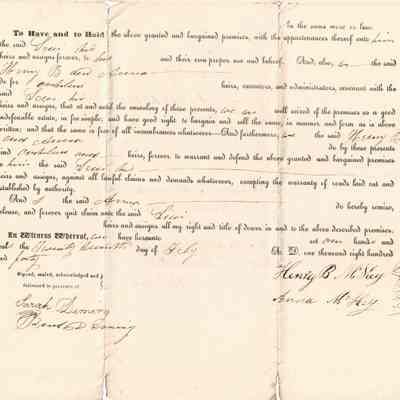 be the same more or less.
To Have and to Hold the above granted and bargained premises, with the appurtenances thereof unto him
the said Levi his
heirs and assigns forever, to and their own proper use and behoof. And, also, we the said
Henry B and Anna
do for heirs, executors, and administrators, covenant with the
said Levi his
heirs and assigns, that at and until the ensealing of these presents, we are well seized of the premises as a good
indefeasible estate, in fee simple; and have good right to bargain and sell the same, in manner and form as is above
written; and that the same is free of all incumbrances whatsoever—And furthermore, we the said Henry B
and Anna do by these presents
and our heirs, forever, to warrant and defend the above granted and bargained premises
to him the said Levi his
heirs and assigns, against all lawful claims and demands whatsoever, excepting the warranty of roads laid out and
established by authority.
And I the said Anna do hereby remise,
release, and forever quit claim unto the said Levi
heirs and assigns all my right and title of dower in and to the above described premises.
In Witness Whereof, we have hereunto set our hands and
seal the Twenty Seventh day of Feby A. D. one thousand eight hundred
and forty
Signed, sealed, acknowledged and
delivered in presence of
Henry B. McVey
Sarah Demery
Anna McVey